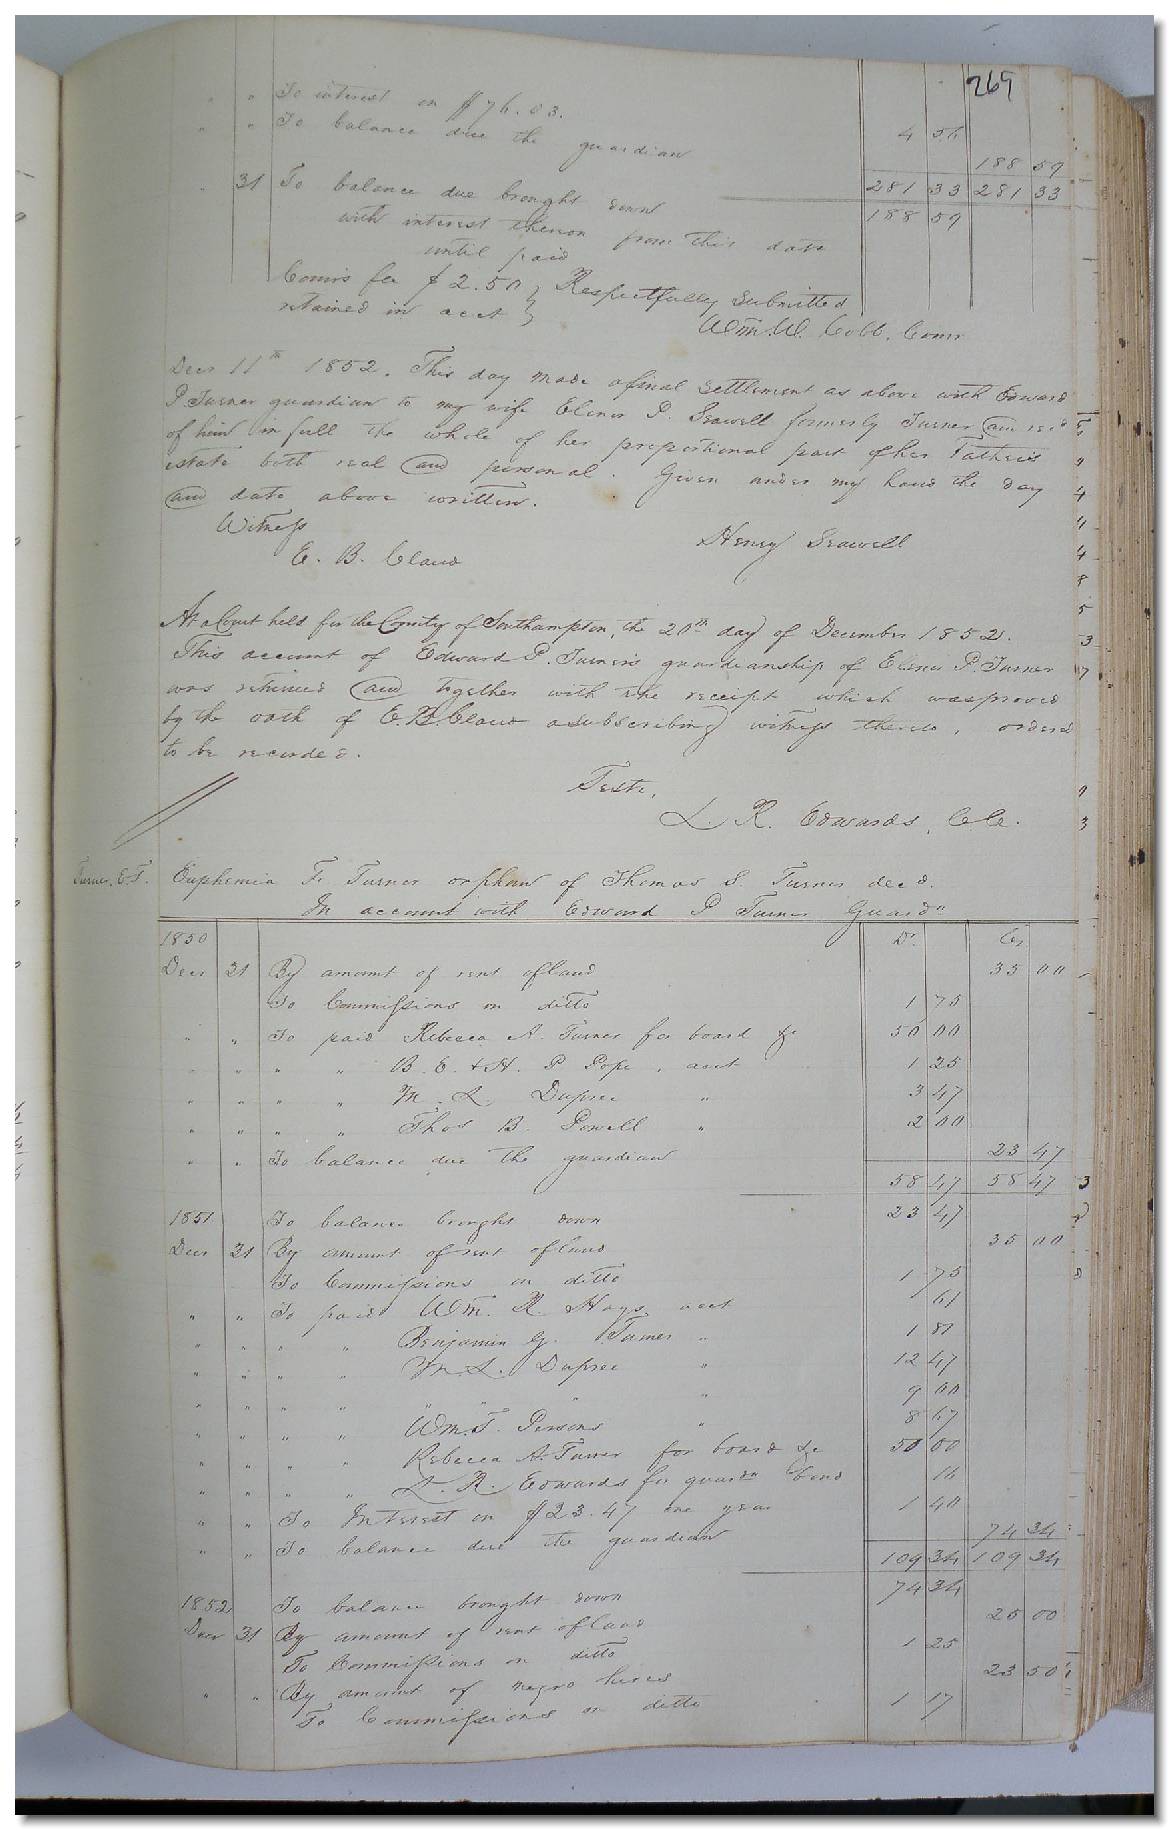 269
" " To interest on $76.03. 4 56
" " To balance due the guardian 188 59
281 33 281 33
" 31 To balance due brought down 188 59
with interest thereon from this date
until paid
Comr's fee $2.50 } Respectfully Submitted
retained in acct } Wm. W. Cobb, Comr
Decr 11th 1852. This day made a final settlement as above with Edward
P Turner guardian to my wife Elenor P. Seawell formerly Turner and recd
of him in full the whole of her proportional part of her Father's
estate both real and personal. Given under my hand the day
and date above written.
Witness Henry Seawell
E. B. Claud
At a Court held for the County of Southampton, the 20th day of December 1852.
This account of Edward P. Turner's guardianship of Elenor P. Turner
was returned and together with the receipt which was proved
by the oath of E. B. Claud a subscribing witness thereto, ordered
to be recorded.
Teste,
L. R. Edwards, Clk.
Turner, E. F.
Euphemia F. Turner orphan of Thomas S. Turner decd.
In account with Edward P Turner Guardn
1850 Dr. Cr
Decr 31 By amount of rent of land 35 00
To Commissions on ditto 1 75
" " To paid Rebecca A. Turner for board &c 50 00
" " " " B. E. & H. P Pope, acct 1 25
" " " " M. L. Dupree " 3 47
" " " " Thos B. Powell " 2 00
" " To balance due the guardian 23 47
58 47 58 47
1851 To balance brought down 23 47
Decr 31 By amount of rent of land 35 00
To Commissions on ditto 1 75
" " To paid Wm. R. Hays acct 61
" " " " Benjamin G. Turner " 1 81
" " " " M. L. Dupree " 12 47
" " " " " " " " 9 00
" " " " Wm. T. Persons " 8 67
" " " " Rebecca A. Turner for board &c 50 00
" " " " L. R. Edwards for guardn bond 16
" " To Interest on $23.47 one year 1 40
" " To balance due the guardian 74 34
109 34 109 34
1852 To balance brought down 74 34
Decr 31 By amount of rent of land 25 00
To Commissions on ditto 1 25
" " By amount of negro hires 23 50
To Commissions on ditto 1 17